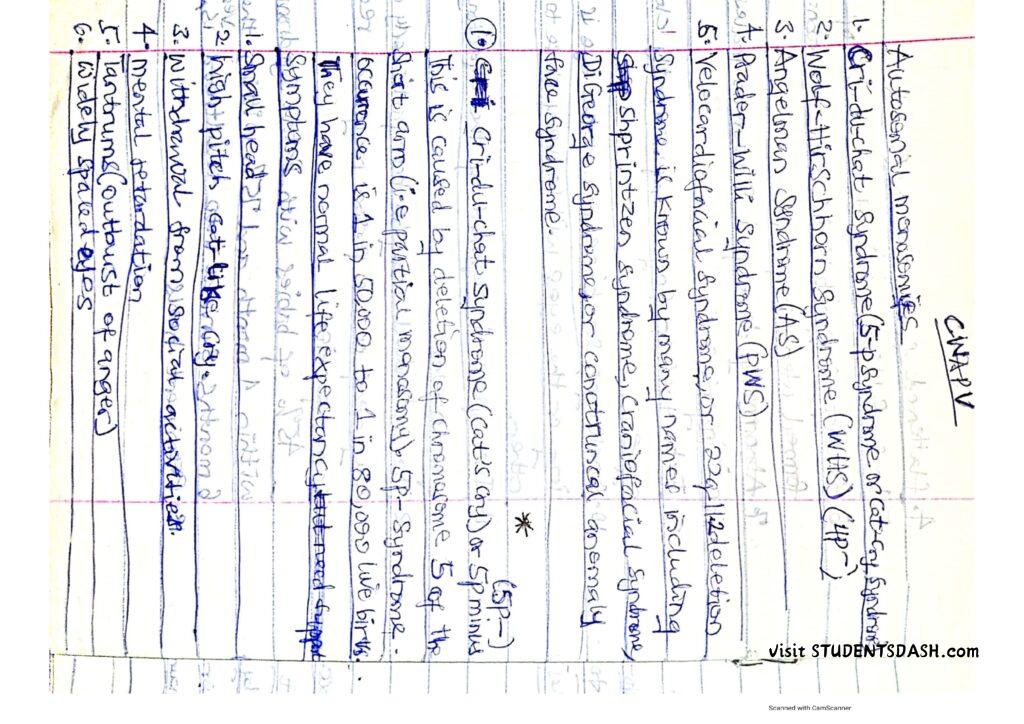 CWAPV
Autosomal monosomies
1. Cri-du-chat syndrome (5-p syndrome or Cat-cry syndrome
2. Wolf-Hirschhorn Syndrome (WHS) (4p-)
3. Angelman Syndrome (AS)
4. Prader-Willi Syndrome (PWS)
5. Velocardiofacial syndrome, or 22q11.2 deletion
syndrome is known by many names including
shprintzen syndrome, craniofacial syndrome,
DiGeorge syndrome, or conotruncal anomaly
face syndrome.
*
(5p-)
1. Cri-du-chat syndrome (cat's cry) or 5p minus
This is caused by deletion of chromosome 5 of the
short arm (i.e partial monosomy) 5p- Syndrome.
occurence is 1 in 50,000 to 1 in 80,000 live births.
They have normal life expectancy but need support
Symptoms
1. Small head
2. high pitch cat-like cry.
3. Withdrawal from social activities.
4. mental retardation
5. Tantrums (outbust of anger)
6. Widely spaced eyes
visit STUDENTSDASH.com
Scanned with CamScanner